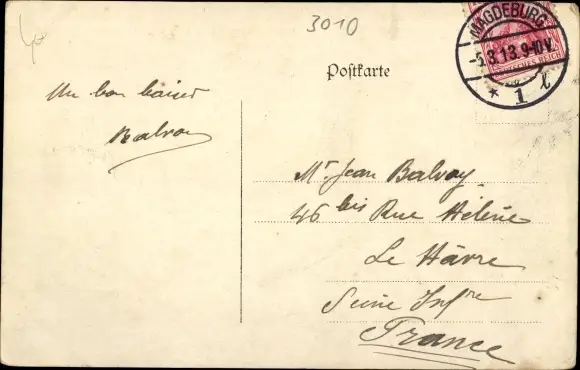 3010
MAGDEBURG
-5.3.13.9-10V.
* 1 l
DEUTSCHES REICH
Postkarte
Un bon baiser
Balvay
Mr Jean Balvay
46 bis Rue Hélène
Le Hâvre
Seine Infre
France